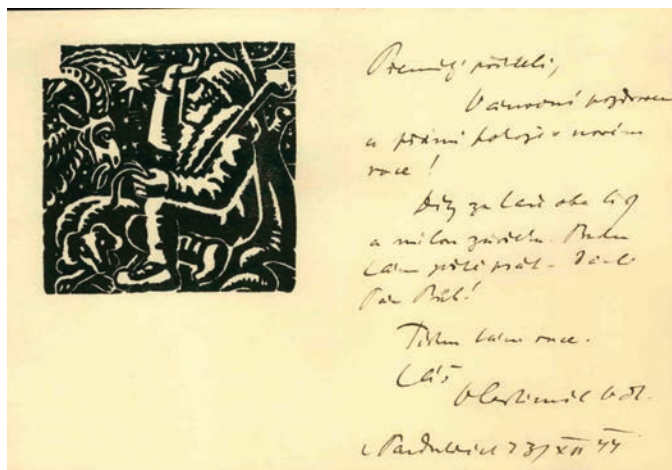 Premilý příteli,
Vánoční pozdrav
a přání pokoje v novém
roce!
Díky za Vaše oba listy
a milou
Vám příště psát -
Pán Bůh!
Tisknu Vám ruce.
Váš
Vlastimil
v Pardubicích 23/XII 44